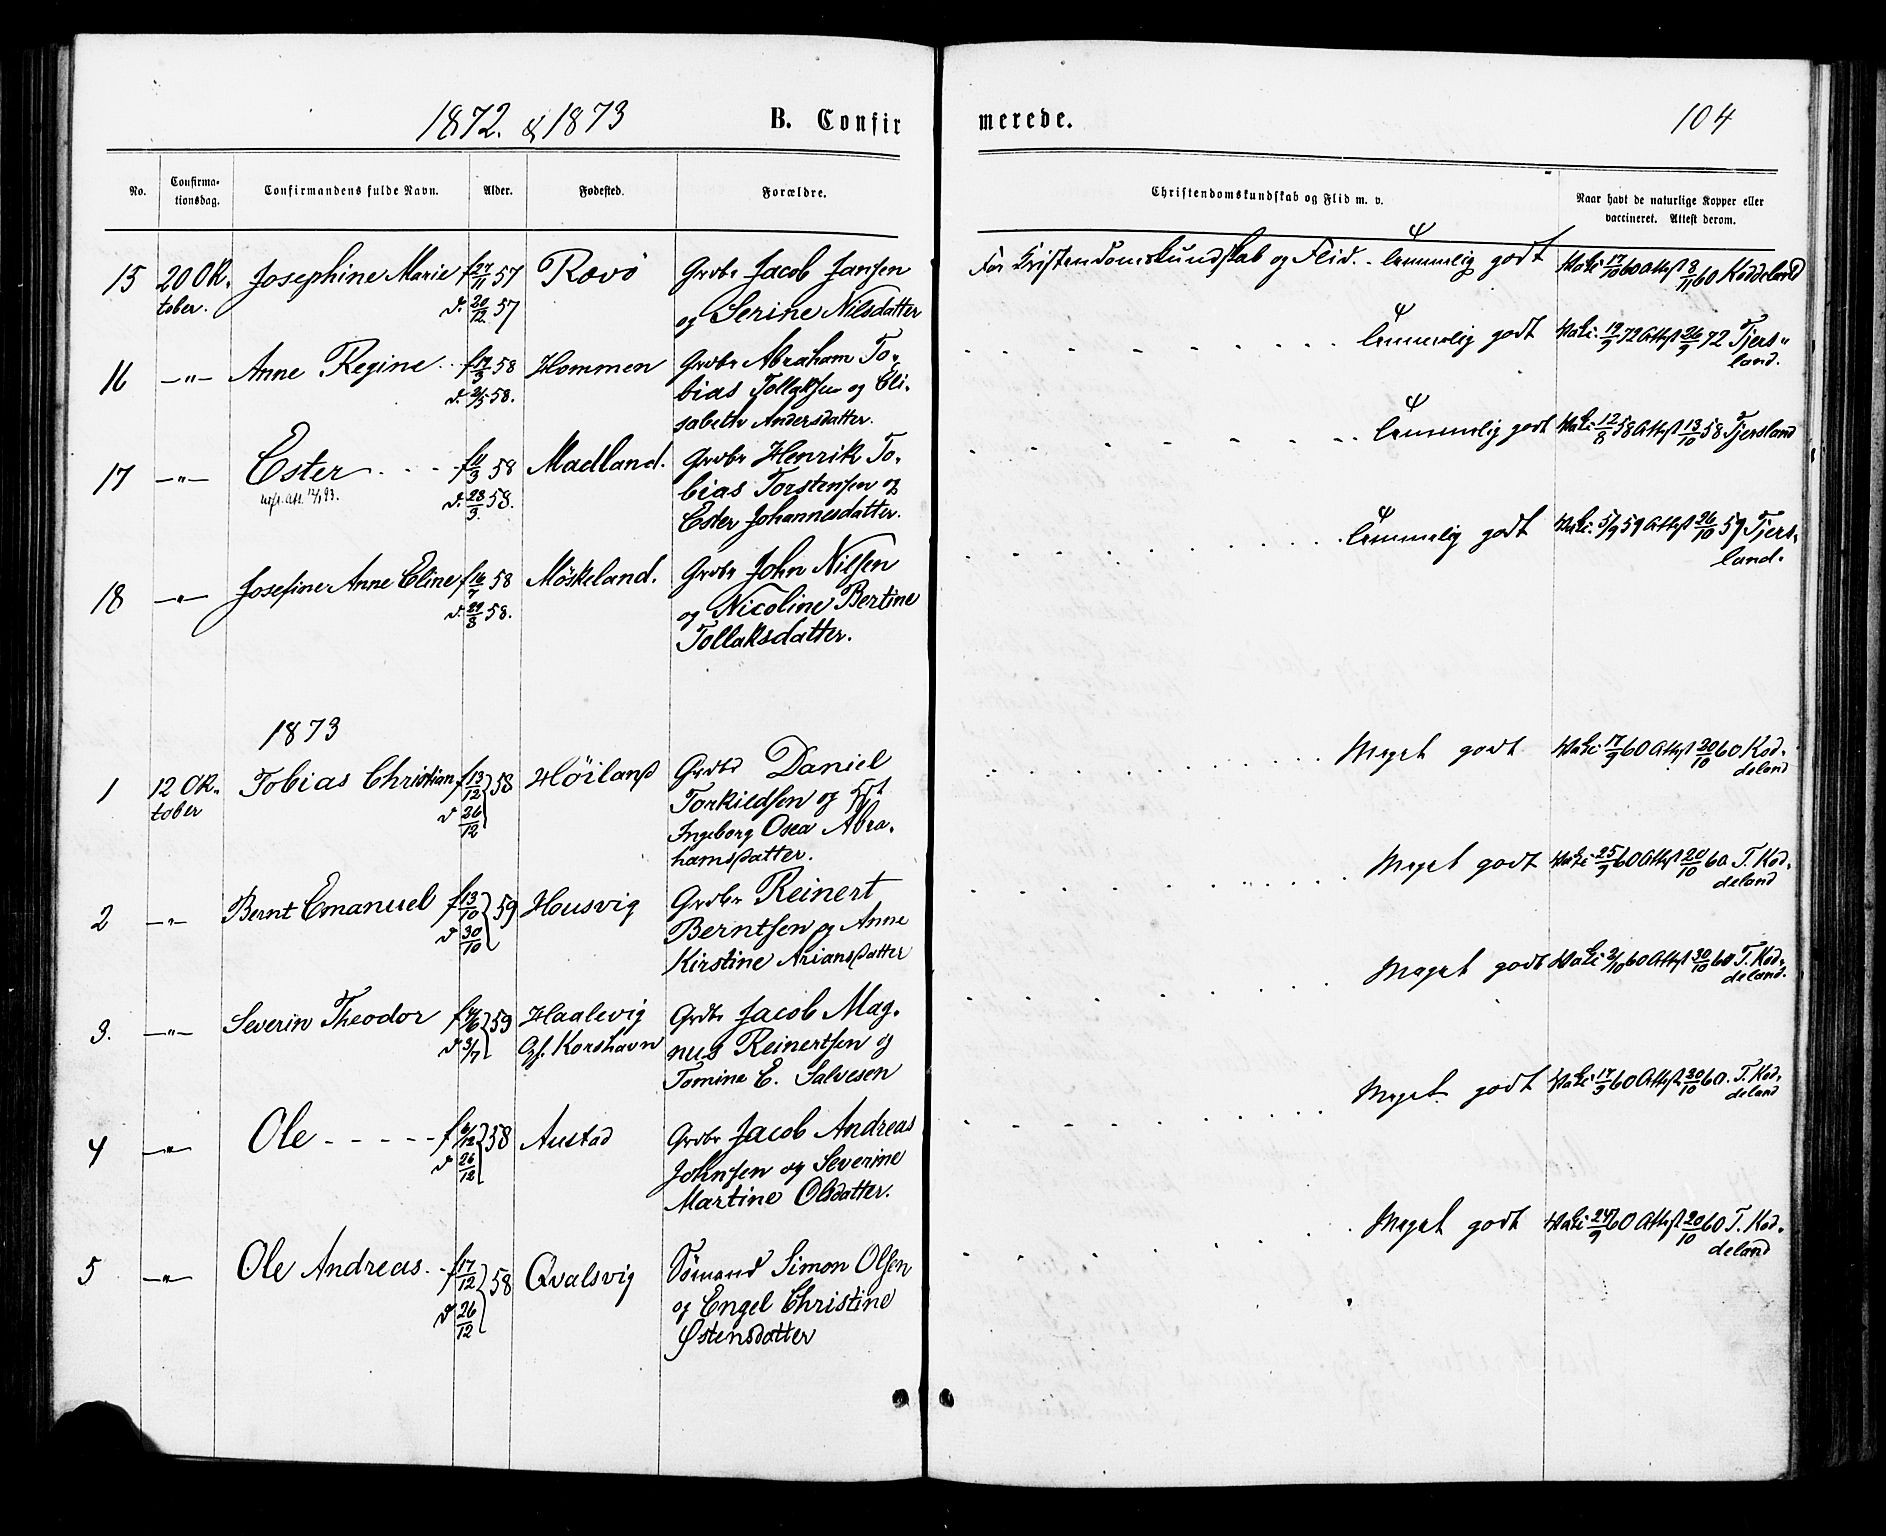 1872. & 1873 B. Confirmerede. 104
No. Confirma-tionsdag. Confirmandens fulde Navn. Alder. Fødested. Forældre. Christendomskundskab og Flid m. v. Naar havt de naturlige Kopper eller vaccineret. Attest derom.
15 20 Ok- Josephine Marie f 27/11 57 Rævø Grdbr Jacob Jansen For Kristendomskundskab og Flid. - temmelig godt Vakc 17/10 60 Attest 8/11 60 Koddeland
tober. d. 20/12 57 og Serine Nilsdatter
16 -"- Anne Regine f 17/3 58 Hommen Grdbr Abraham To- temmelig godt Vakc. 19/9 72 Attest 26/9 72 Tjers-
d. 2/5 58. bias Tollaksen og Eli- land.
sabeth Andersdatter.
17 -"- Ester f 11/3 58 Madland. Grdbr Henrik To- temmelig godt Vakc. 12/8 58 Attest 13/10 58 Tjersland
d. 28/3 58. bias Torstensen og
Ester Johannesdatter.
18 -"- Josefine Anne Eline f 16/7 58 Möskeland. Grdbr John Nilsen temmelig godt Vakc. 5/9 59 Attest 26/10 59 Tjers-
d. 58. og Nicoline Bertine land.
Tollaksdatter.
1873
1 12 Ok- Tobias Christian f 13/12 58 Höiland Grdbr Daniel Meget godt Vakc 17/9 60 Attest 20/10 60 Kod-
tober d 26/12 Torkildsen og deland
Ingeborg Osea Abra-
hamsdatter.
2 -"- Bernt Emanuel f 13/10 59 Housvig Grdbr Reinert Meget godt Vakc 25/9 60 Attest 20/10 60 T. Kod-
d 30/10 Berntsen og Anne deland
Kirstine Ariansdatter
3. -"- Severin Theodor f 4/6 59 Haalevig Grdbr Jacob Mag- Meget godt Vakc 2/10 60 Attest 30/10 60 T. Kod-
d 3/7 Korshavn nus Reinertsen og deland.
Tomine E. Salvesen
4 -"- Ole f 6/12 58 Austad Grdbr Jacob Andreas Meget godt Vakc 17/9 60 Attest 20/10 60. T. Kod-
d 26/12 Johnsen og Severine deland
Martine Olsdatter.
5 -"- Ole Andreas f 17/12 58 Qvalsvig Sömand Simon Olsen Meget godt Vakc 24/9 60 Attest 20/10 60 T. Kod-
d 26/12 og Engel Christine deland
Østensdatter